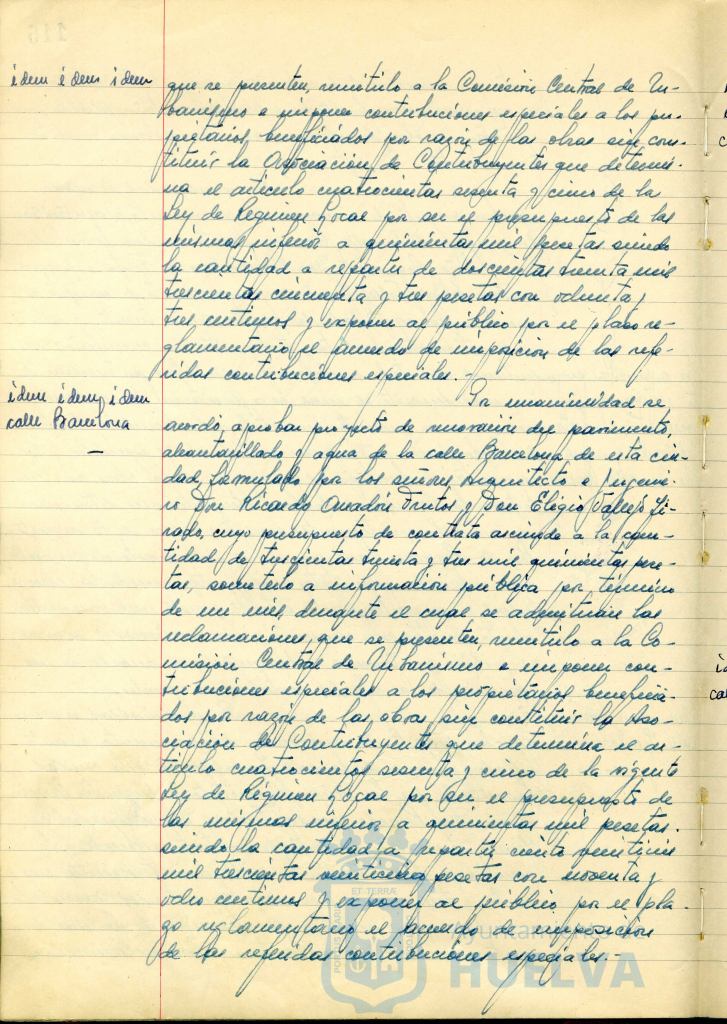 idem idem idem
que se presenten, remitirlo a la Comisión Central de Ur-
banismo e imponer contribuciones especiales a los pro-
pietarios beneficiados por razón de las obras sin cons-
tituir la Asociación de Contribuyentes que determi-
na el artículo cuatrocientos sesenta y cinco de la
Ley de Régimen Local por ser el presupuesto de las
mismas inferior a quinientas mil pesetas siendo
la cantidad a repartir de doscientas treinta mil
trescientas cincuenta y tres pesetas con ochenta y
tres centimos y exponer al público por el plazo re-
glamentario el acuerdo de imposición de las refe-
ridas contribuciones especiales.-
idem idem idem
calle Barcelona
Por unanimidad se
acordó, aprobar proyecto de renovación del pavimento,
alcantarillado y agua de la calle Barcelona de esta ciu-
dad, formulado por los señores Arquitecto e Ingenie-
ro Don Ricardo Anadón Frutos y Don Eligio Vallejo Ti-
rado, cuyo presupuesto de contrata asciende a la can-
tidad de trescientas treinta y tres mil quinientas pese-
tas, someterlo a información pública por término
de un mes, durante el cual se admitirán las
reclamaciones, que se presenten, remitirlo a la Co-
misión Central de Urbanismo e imponer con-
tribuciones especiales a los propietarios beneficia-
dos por razón de las obras sin constituir la Aso-
ciación de Contribuyentes que determina el ar-
tículo cuatrocientos sesenta y cinco de la vigente
Ley de Régimen Local por ser el presupuesto de
las mismas inferior a quinientas mil pesetas.
siendo la cantidad a repartir ciento
mil trescientas veinticinco pesetas con noventa y
ocho centimos y exponer al público por el pla-
zo reglamentario el acuerdo de imposición
de las referidas contribuciones especiales.-
ET TERRAE
Ayuntamiento
HUELVA